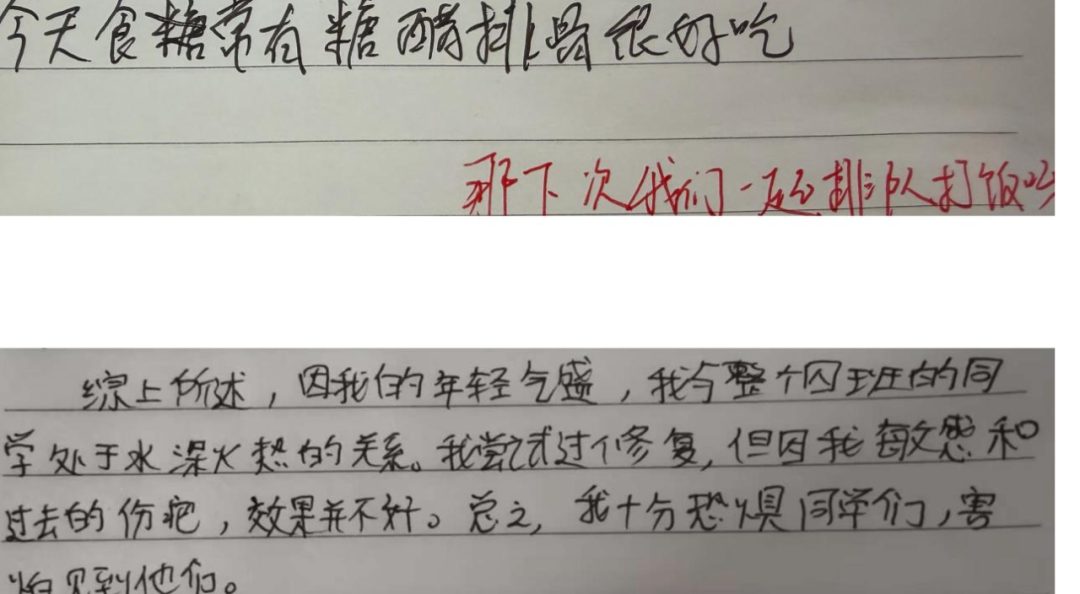 今天食糖常有糖醋排骨很好吃
那下次我们一起排队打饭吵
综上所述，因我的年轻气盛，我与整个囚班的同
学处于水深火热的关系。我尝试过修复，但因我敏感和
过去的伤疤，效果并不好。总之，我十分恐惧同学们，害
怕见到他们。